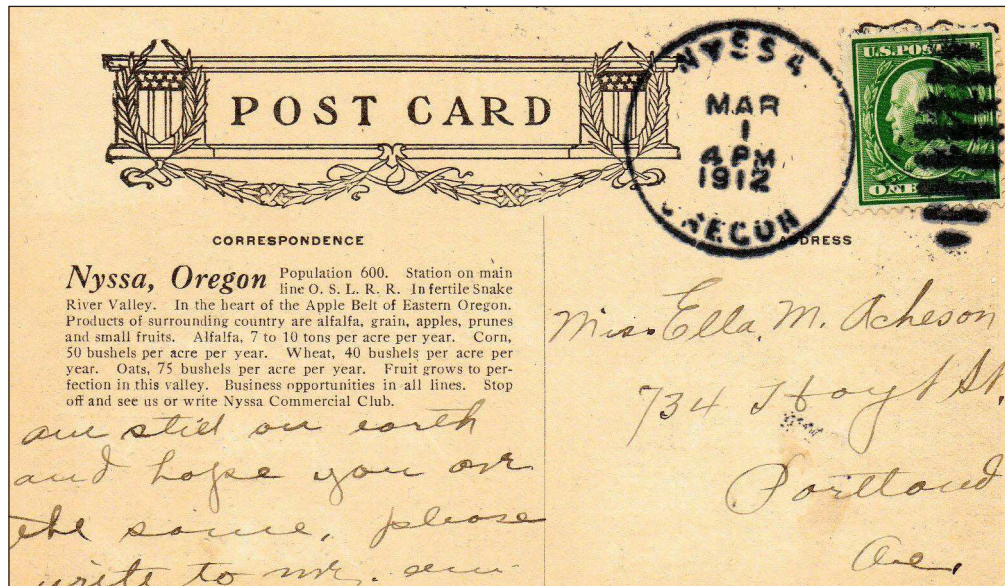 POST CARD
NYSSA
MAR
1
4 PM
1912
OREGON
U.S. POSTAGE
ONE
CORRESPONDENCE
Nyssa, Oregon Population 600. Station on main
line O. S. L. R. R. In fertile Snake
River Valley. In the heart of the Apple Belt of Eastern Oregon.
Products of surrounding country are alfalfa, grain, apples, prunes
and small fruits. Alfalfa, 7 to 10 tons per acre per year. Corn,
50 bushels per acre per year. Wheat, 40 bushels per acre per
year. Oats, 75 bushels per acre per year. Fruit grows to per-
fection in this valley. Business opportunities in all lines. Stop
off and see us or write Nyssa Commercial Club.
am still on earth
and hope you are
the same, please
write to me. am
ADDRESS
Miss Ella M. Acheson
734 Hoyt St.
Portland
Ore.